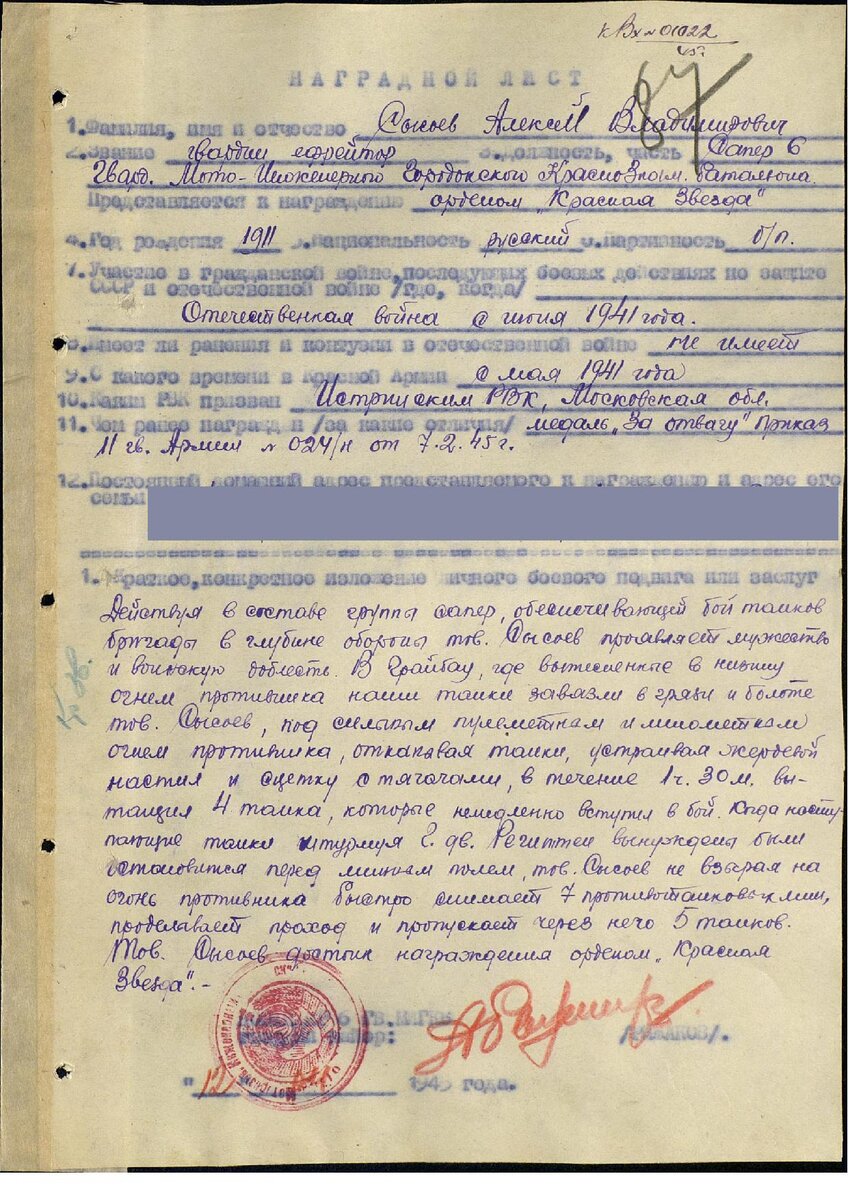 к Вх № 01022
87
НАГРАДНОЙ ЛИСТ
1. Фамилия, имя и отчество Сысоев Алексей Владимирович
2. Звание гвардии ефрейтор 3. Должность, часть Сапер 6
Гвард. Мото-Инженерного Городокского Краснознам. Баталиона.
Представляется к награждению орденом „Красная Звезда"
4. Год рождения 1911 5. Национальность русский 6. Партийность б/п.
7. Участие в гражданской войне, последующих боевых действиях по защите
СССР и отечественной войне /где, когда/
Отечественная война с июня 1941 года.
8. Имеет ли ранения и контузии в отечественной войне не имеет
9. С какого времени в Красной Армии с мая 1941 года
10. Каким РВК призван Истринским РВК, Московская обл.
11. Чем ранее награжден /за какие отличия/ медаль „За отвагу" Приказ
11 гв. Армии № 024/н от 7.2.45г.
12. Постоянный домашний адрес представляемого к награждению и адрес его
семьи
1. Краткое, конкретное изложение личного боевого подвига или заслуг
Действуя в составе группы сапер, обеспечивающей бой танков
бригады в глубине обороны тов. Сысоев проявляет мужество
и воинскую доблесть. В Грайбау, где вытесненные в низину
огнем противника наши танки завязли в грязи и болоте
тов. Сысоев, под сильным пулеметным и минометным
огнем противника, откапывая танки, устраивая жердевой
настил и сцепку с тягачами, в течение 1ч. 30м. вы-
тащил 4 танка, которые немедленно вступил в бой. Когда насту-
пающие танки штурмуя г. дв. Региттен вынуждены были
остановится перед минным полем, тов. Сысоев не взырая на
огонь противника быстро снимает 7 противотанковых мин,
проделывает проход и пропускает через него 5 танков.
Тов. Сысоев достоин награждения орденом „Красная
Звезда".-
6 ГВ.
майор:
"12" 1945 года.